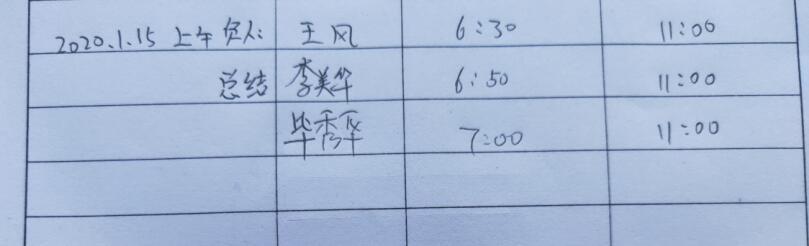 2020.1.15 上午 负人: 王风 6:30 11:00
总结 李美华 6:50 11:00
毕秀华 7:00 11:00